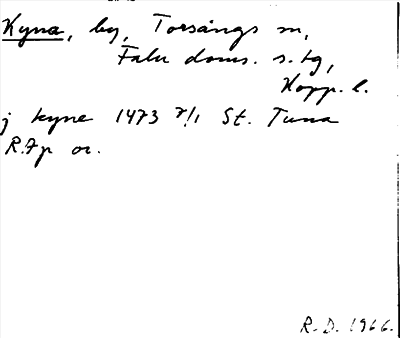 Kyna, by, Torsångs sn,
Falu doms. s. tg,
Kopp. l.
j kyne 1473 7/1 St. Tuna
RAp or.
R. D. 1966.